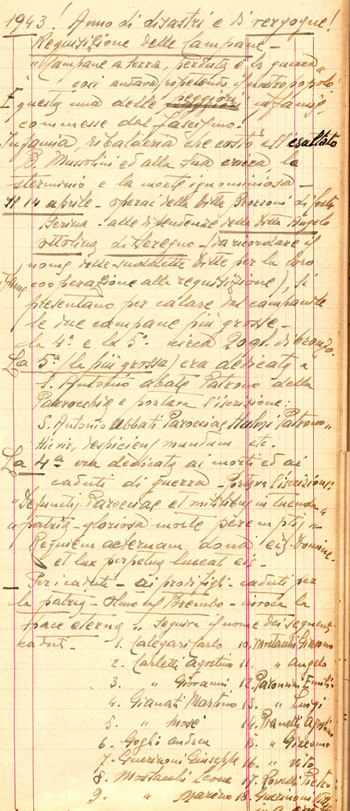 1943! Anno di disastri e di vergogne!
Requisizione delle Campane -
"Campane a terra, perduta è la guerra"
così andava ripetendo il nostro popolo!
E questa una delle infamie
commesse dal fascismo -
Infamia, ribalderia che costò all'esaltato
B. Mussolini ed alla sua cricca lo
sterminio e la morte ignominiosa -
Il 14 aprile - operai della Ditta
alle dipendenze della Ditta Angelo
Ottolina di Seregno - da ricordare il
nome delle suddette Ditte per la loro
cooperazione alle requisizione), si
presentano per calare dal campanile
le due campane più grosse -
La 4ª e la 5ª circa 20 qn. di bronzo.
La 5ª (la più grossa) era dedicata a
S. Antonio abate Patrono della
Parrocchia e portava l'iscrizione:
S. Antonio Abbati Paroeciae Hulni Patrono
respiciens mundum etc.
La 4ª era dedicata ai morti ed ai
caduti di guerra - Portava l'iscrizione:
"Defunctis Paroeciae et militibus in tuenda
patria - gloriosa morte peremptis -
Requiem aeternam dona eis Domine,
et lux perpetua luceat eis -
Per i caduti - ai prodi figli caduti per
la patria - Olmo al Brembo - invoca la
pace eterna. Seguiva il nome dei seguenti
caduti -
1. Calegari Carlo 10. Mostacchi Giacomo
2. Carletti Agostino 11. " Angelo
3. " Giovanni 12.
4. Granati Martino 13. " Luigi
5. " Mosè 14. Pianetti Agostino
6. Goglio Andrea 15. " Giacomo
7. Guerinoni Giuseppe 16. " Vito
8. Mostacchi Leone 17. Pietro
9. " Marino 18. Guerinoni